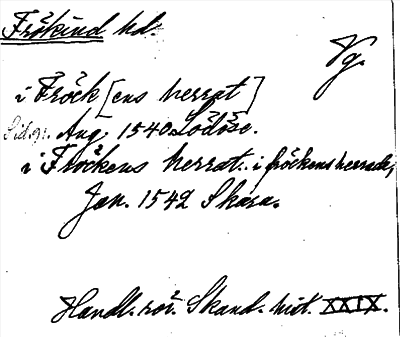 Frökind hd.
Vg.
i Fröck[ens herrat]
Sid. 91. Aug. 1540 Lödöse.
i Fröckens herrat. i fröckens herrade,
Jan. 1542 Skara.
Handl. rör. Skand. hist. XXIX.